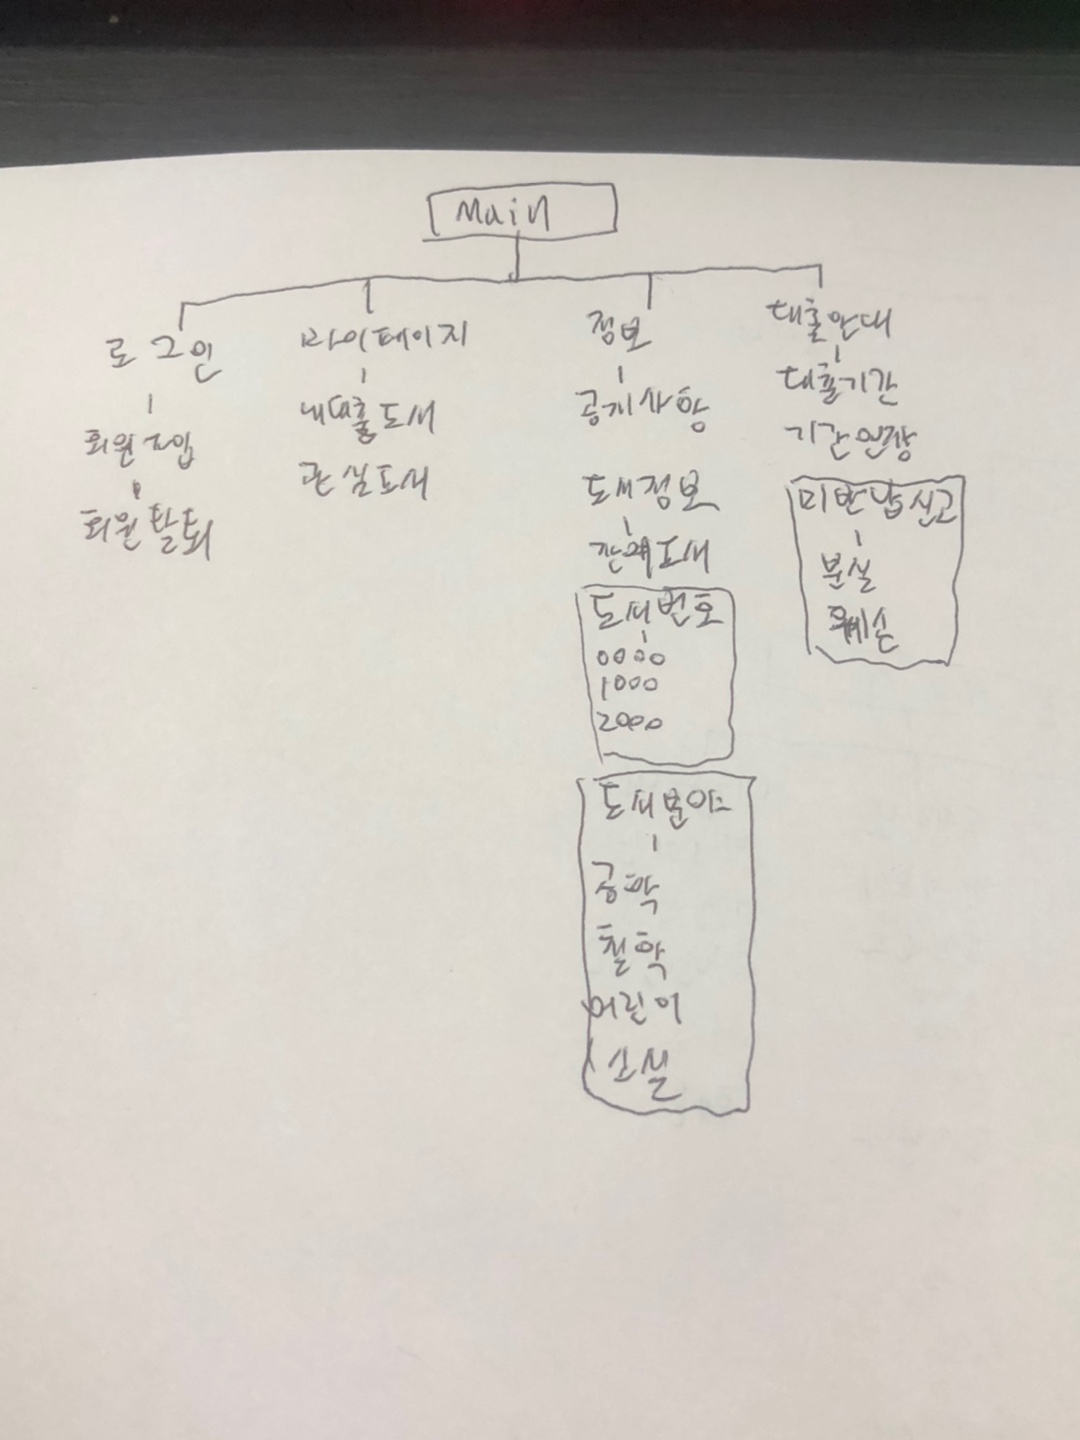 Main
로그인
회원가입
회원탈퇴
마이페이지
내대출도서
관심도서
정보
공지사항
도서정보
잔여도서
도서번호
0000
1000
2000
도서분야
공학
철학
어린이
소설
대출안내
대출기간
기간연장
미반납신고
분실
훼손